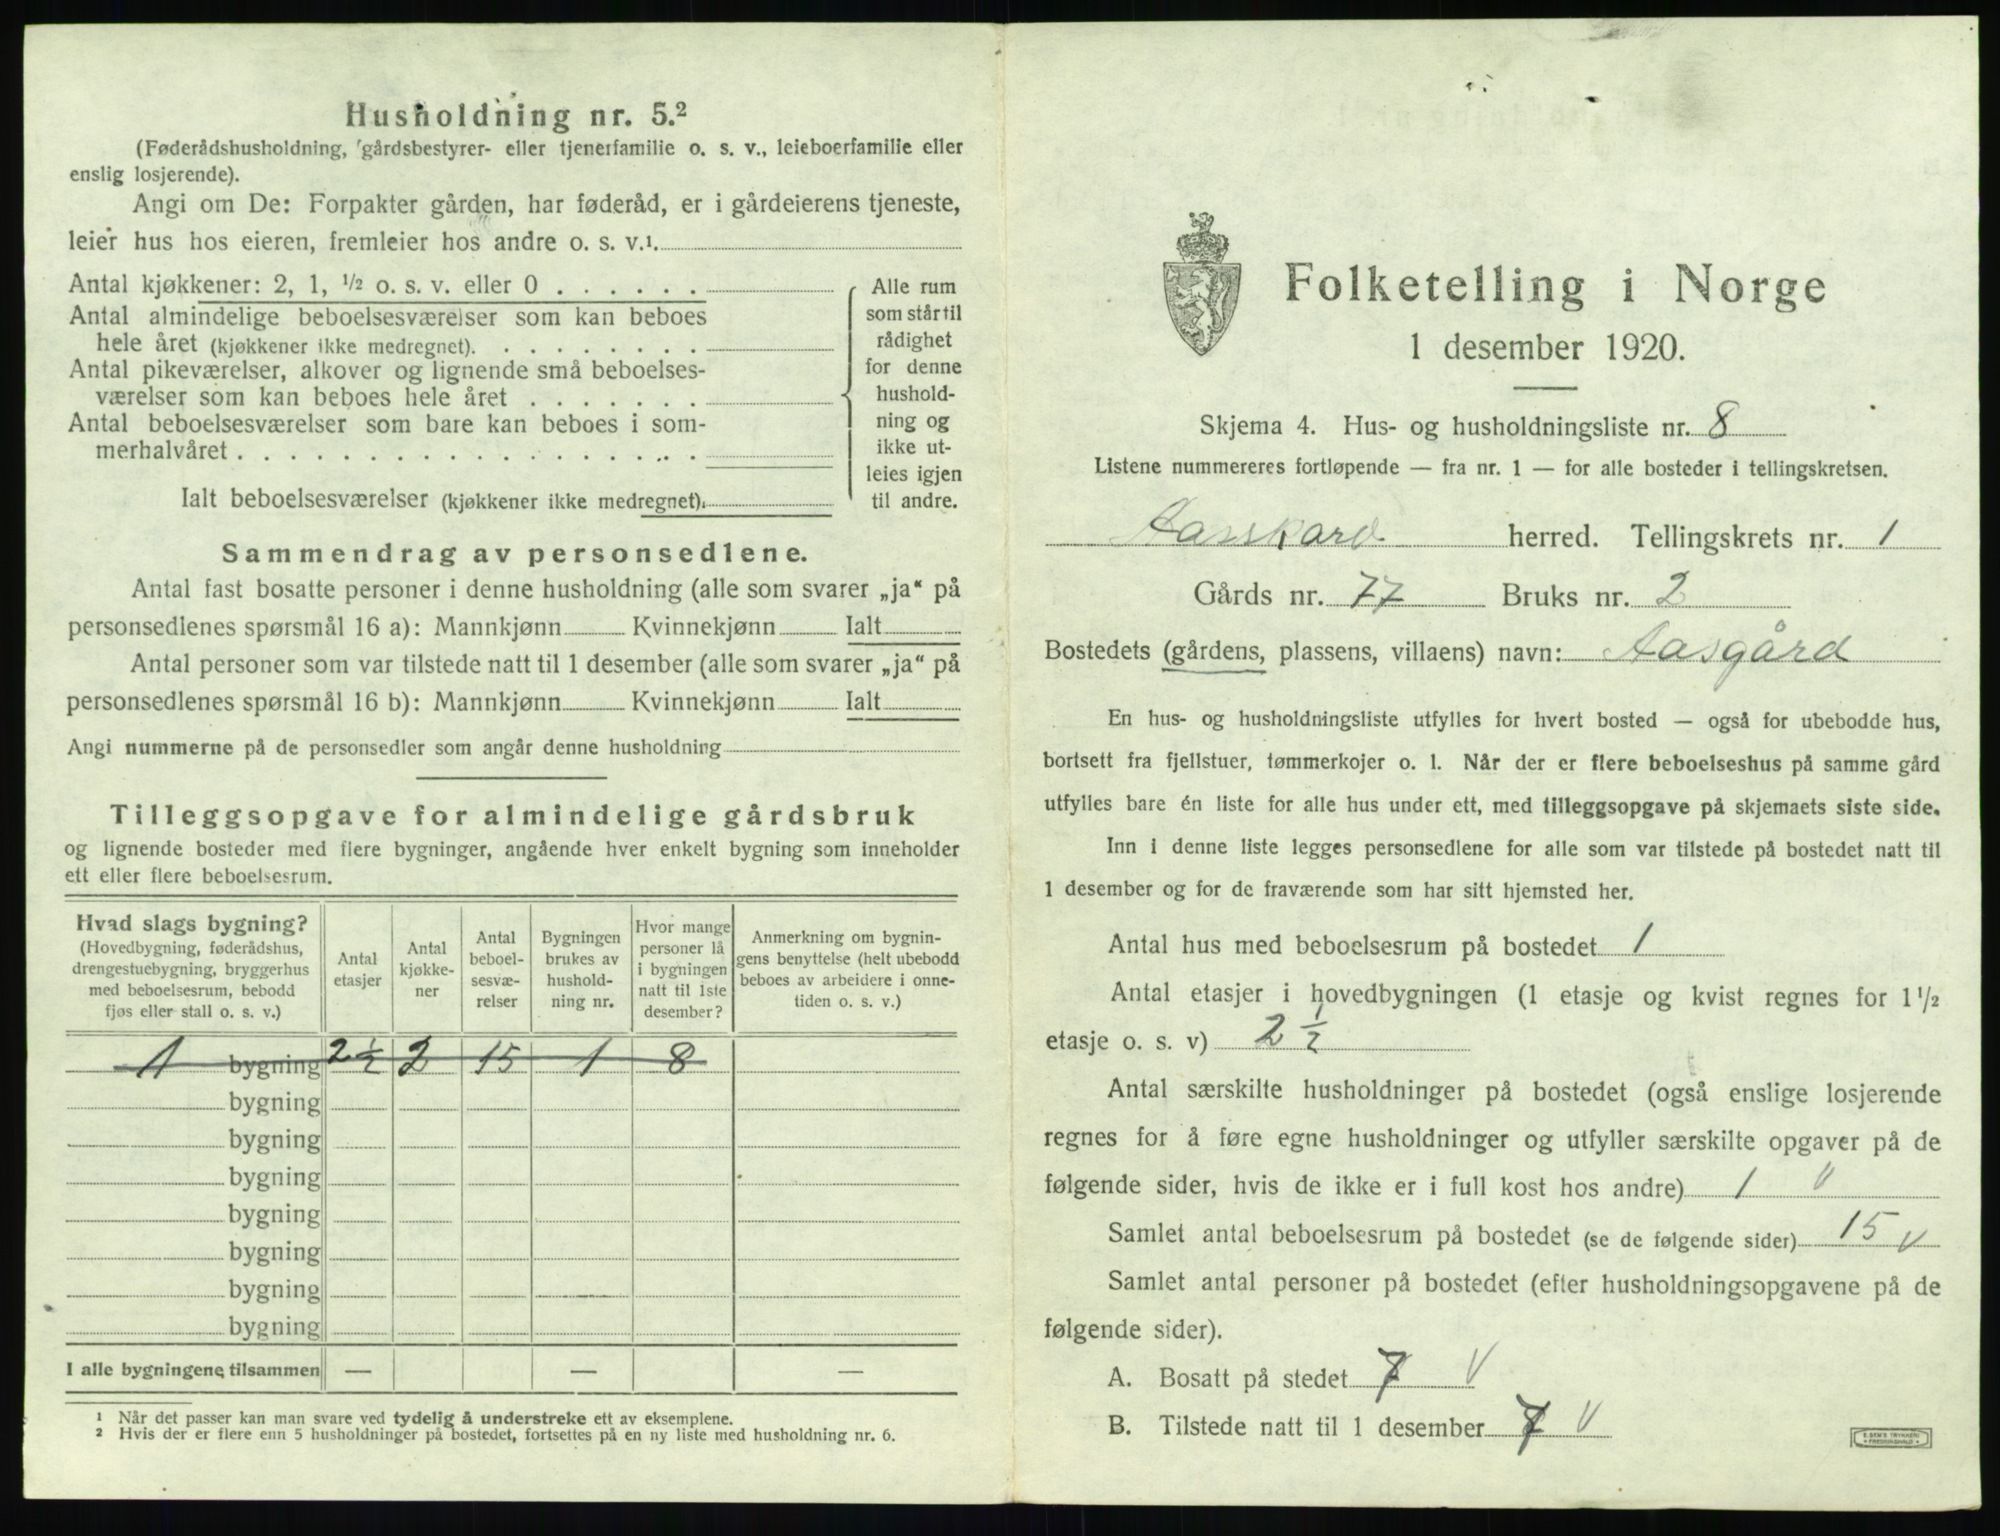 Husholdning nr. 5.²
(Føderådshusholdning, gårdsbestyrer- eller tjenerfamilie o. s. v., leieboerfamilie eller
enslig losjerende).
Angi om De: Forpakter gården, har føderåd, er i gårdeierens tjeneste,
leier hus hos eieren, fremleier hos andre o. s. v.¹.
Antal kjøkkener: 2, 1, ½ o. s. v. eller 0 . . . . . .
Antal almindelige beboelsesværelser som kan beboes
hele året (kjøkkener ikke medregnet). . . . . . . . .
Antal pikeværelser, alkover og lignende små beboelses-
værelser som kan beboes hele året . . . . . . .
Antal beboelsesværelser som bare kan beboes i som-
merhalvåret . . . . . . . . . . . . . . . . . .
Ialt beboelsesværelser (kjøkkener ikke medregnet).
Alle rum
som står til
rådighet
for denne
hushold-
ning og
ikke ut-
leies igjen
til andre.
Sammendrag av personsedlene.
Antal fast bosatte personer i denne husholdning (alle som svarer „ja“ på
personsedlenes spørsmål 16 a): Mannkjønn Kvinnekjønn Ialt
Antal personer som var tilstede natt til 1 desember (alle som svarer „ja“ på
personsedlenes spørsmål 16 b): Mannkjønn Kvinnekjønn Ialt
Angi nummerne på de personsedler som angår denne husholdning
Tilleggsopgave for almindelige gårdsbruk
og lignende bosteder med flere bygninger, angående hver enkelt bygning som inneholder
ett eller flere beboelsesrum.
Hvad slags bygning?
(Hovedbygning, føderådshus,
drengestuebygning, bryggerhus
med beboelsesrum, bebodd
fjøs eller stall o. s. v.)
Antal
etasjer
Antal
kjøkke-
ner
Antal
beboel-
sesvæ-
relser
Bygningen
brukes av
hushold-
ning nr.
Hvor mange
personer lå
i bygningen
natt til 1ste
desember?
Anmerkning om bygnin-
gens benyttelse (helt ubebodd
beboes av arbeidere i onne-
tiden o. s. v.)
1 bygning 2 ½ 2 15 1 8
bygning
bygning
bygning
bygning
bygning
bygning
bygning
I alle bygningene tilsammen — — —
¹ Når det passer kan man svare ved tydelig å understreke ett av eksemplene.
² Hvis der er flere enn 5 husholdninger på bostedet, fortsettes på en ny liste med husholdning nr. 6.
Folketelling i Norge
1 desember 1920.
Skjema 4. Hus- og husholdningsliste nr. 8
Listene nummereres fortløpende — fra nr. 1 — for alle bosteder i tellingskretsen.
Aasskard herred. Tellingskrets nr. 1
Gårds nr. 77 Bruks nr. 2
Bostedets (gårdens, plassens, villaens) navn: Aasgård
En hus- og husholdningsliste utfylles for hvert bosted — også for ubebodde hus,
bortsett fra fjellstuer, tømmerkojer o. l. Når der er flere beboelseshus på samme gård
utfylles bare én liste for alle hus under ett, med tilleggsopgave på skjemaets siste side.
Inn i denne liste legges personsedlene for alle som var tilstede på bostedet natt til
1 desember og for de fraværende som har sitt hjemsted her.
Antal hus med beboelsesrum på bostedet 1
Antal etasjer i hovedbygningen (1 etasje og kvist regnes for 1 ½
etasje o. s. v) 2 ½
Antal særskilte husholdninger på bostedet (også enslige losjerende
regnes for å føre egne husholdninger og utfyller særskilte opgaver på de
følgende sider, hvis de ikke er i full kost hos andre) 1 v
Samlet antal beboelsesrum på bostedet (se de følgende sider) 15 v
Samlet antal personer på bostedet (efter husholdningsopgavene på de
følgende sider).
A. Bosatt på stedet 7 v
B. Tilstede natt til 1 desember 7 v